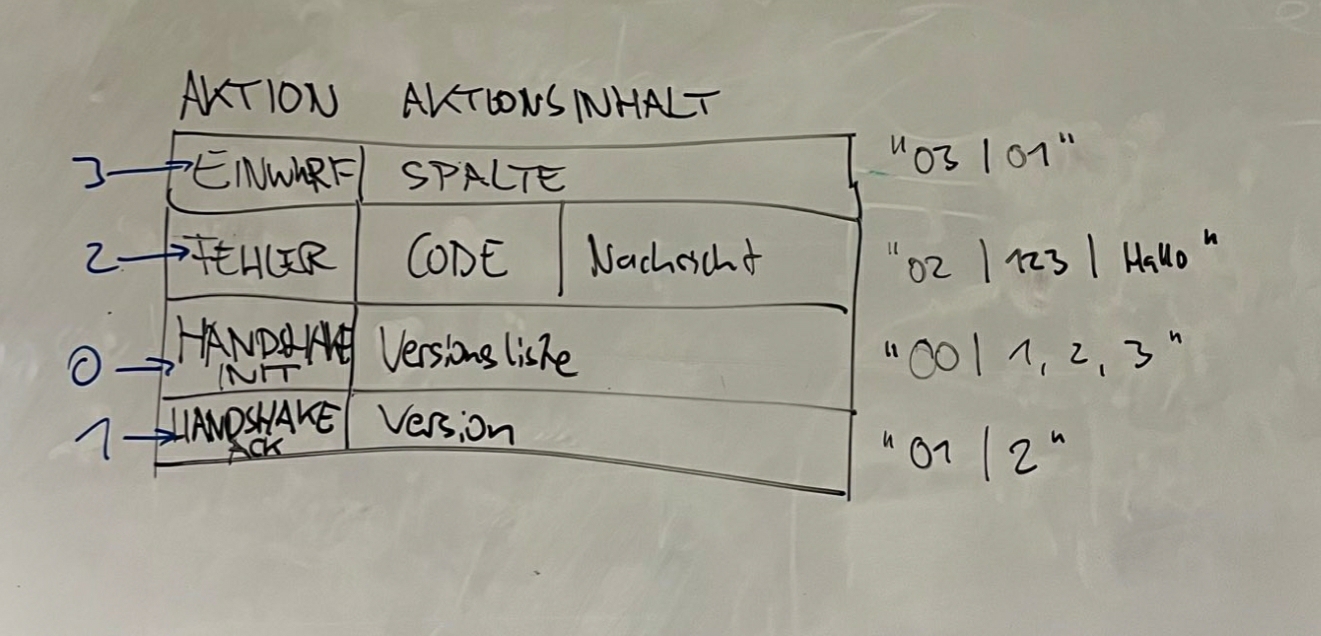 AKTION AKTIONSINHALT
3 EINWURF SPALTE "03 | 01"
2 FEHLER CODE Nachricht "02 | 123 | Hallo"
0 HANDSHAKE INIT Versionsliste "00 | 1, 2, 3"
1 HANDSHAKE ACK Version "01 | 2"